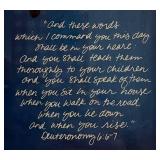 "And these words
which I command you this day
shall be in your heart.
And you shall teach them
thoroughly to your children
and you shall speak of them
when you sit in your house
when you walk on the road,
when you lie down
and when you rise."
Deuteronomy 6:6-7